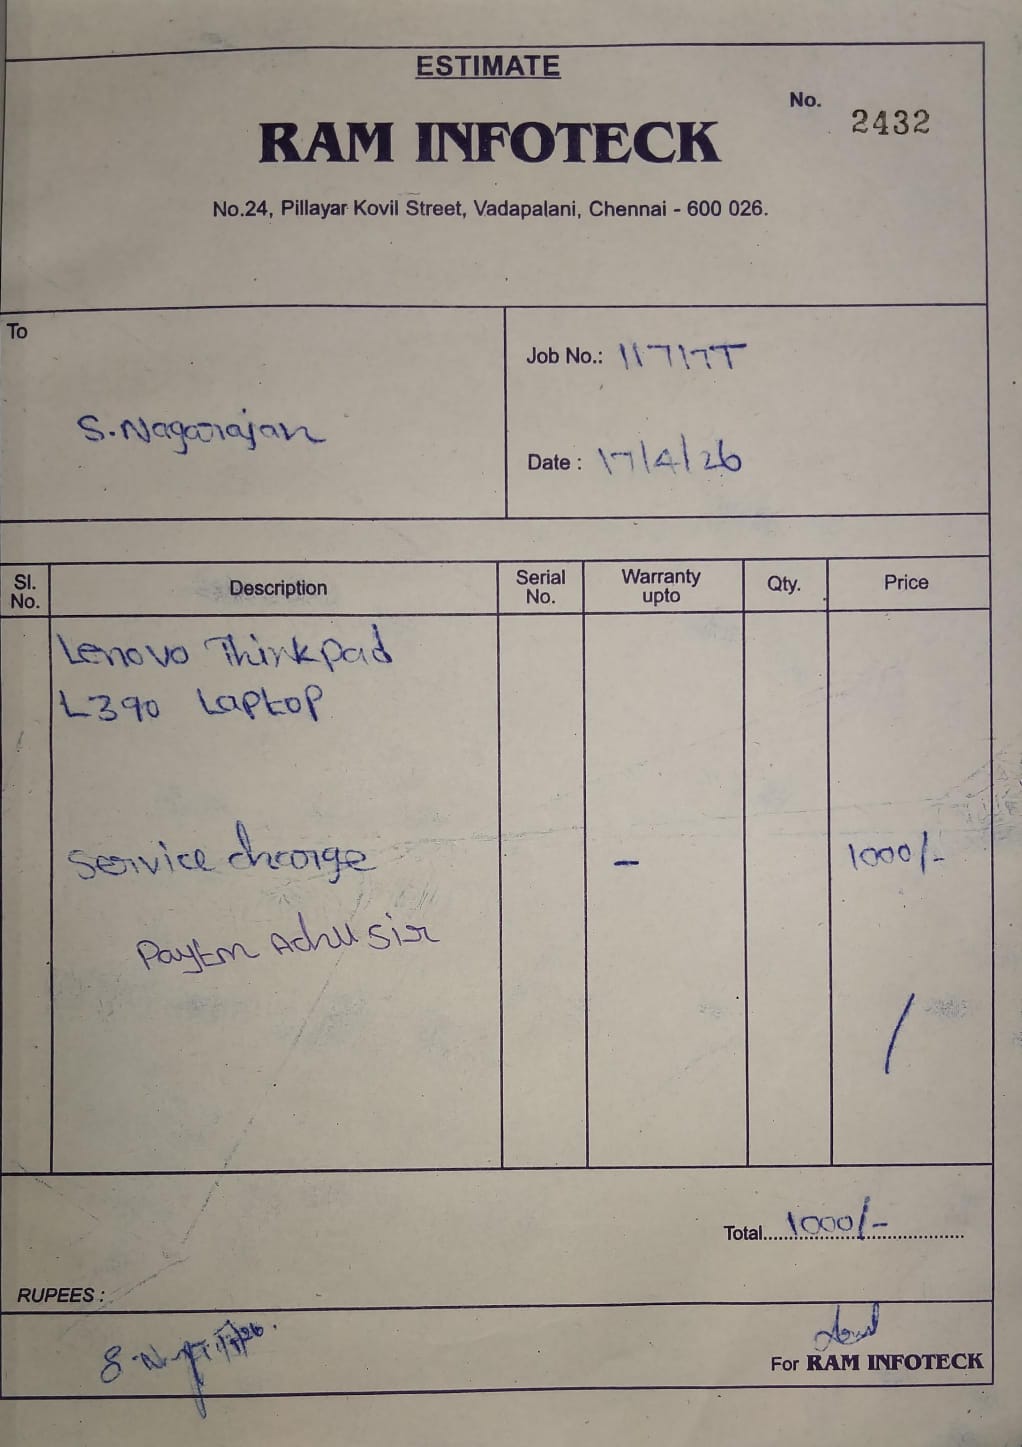 ESTIMATE
No. 2432
RAM INFOTECK
No.24, Pillayar Kovil Street, Vadapalani, Chennai - 600 026.
To
S. Nagarajan
Job No.: 11717T
Date : 17/4/26
Sl. No. Description Serial No. Warranty upto Qty. Price
Lenovo Thinkpad
L390 Laptop
Service charge - 1000/-
Paytm Adhu Sir
Total 1000/-
RUPEES :
For RAM INFOTECK